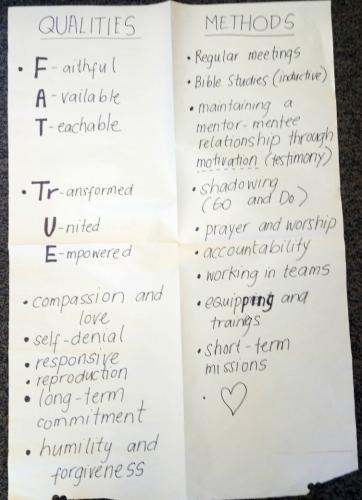 QUALITIES
• F-aithful
A-vailable
T-eachable
• Tr-ansformed
U-nited
E-mpowered
• compassion and
love
• self-denial
• responsive
• reproduction
• long-term
commitment
• humility and
forgiveness
METHODS
• Regular meetings
• Bible Studies (inductive)
• maintaining a
mentor-mentee
relationship through
motivation (testimony)
• shadowing
(GO and Do)
• prayer and worship
• accountability
• working in teams
• equipping and
traings
• short-term
missions
• ♡